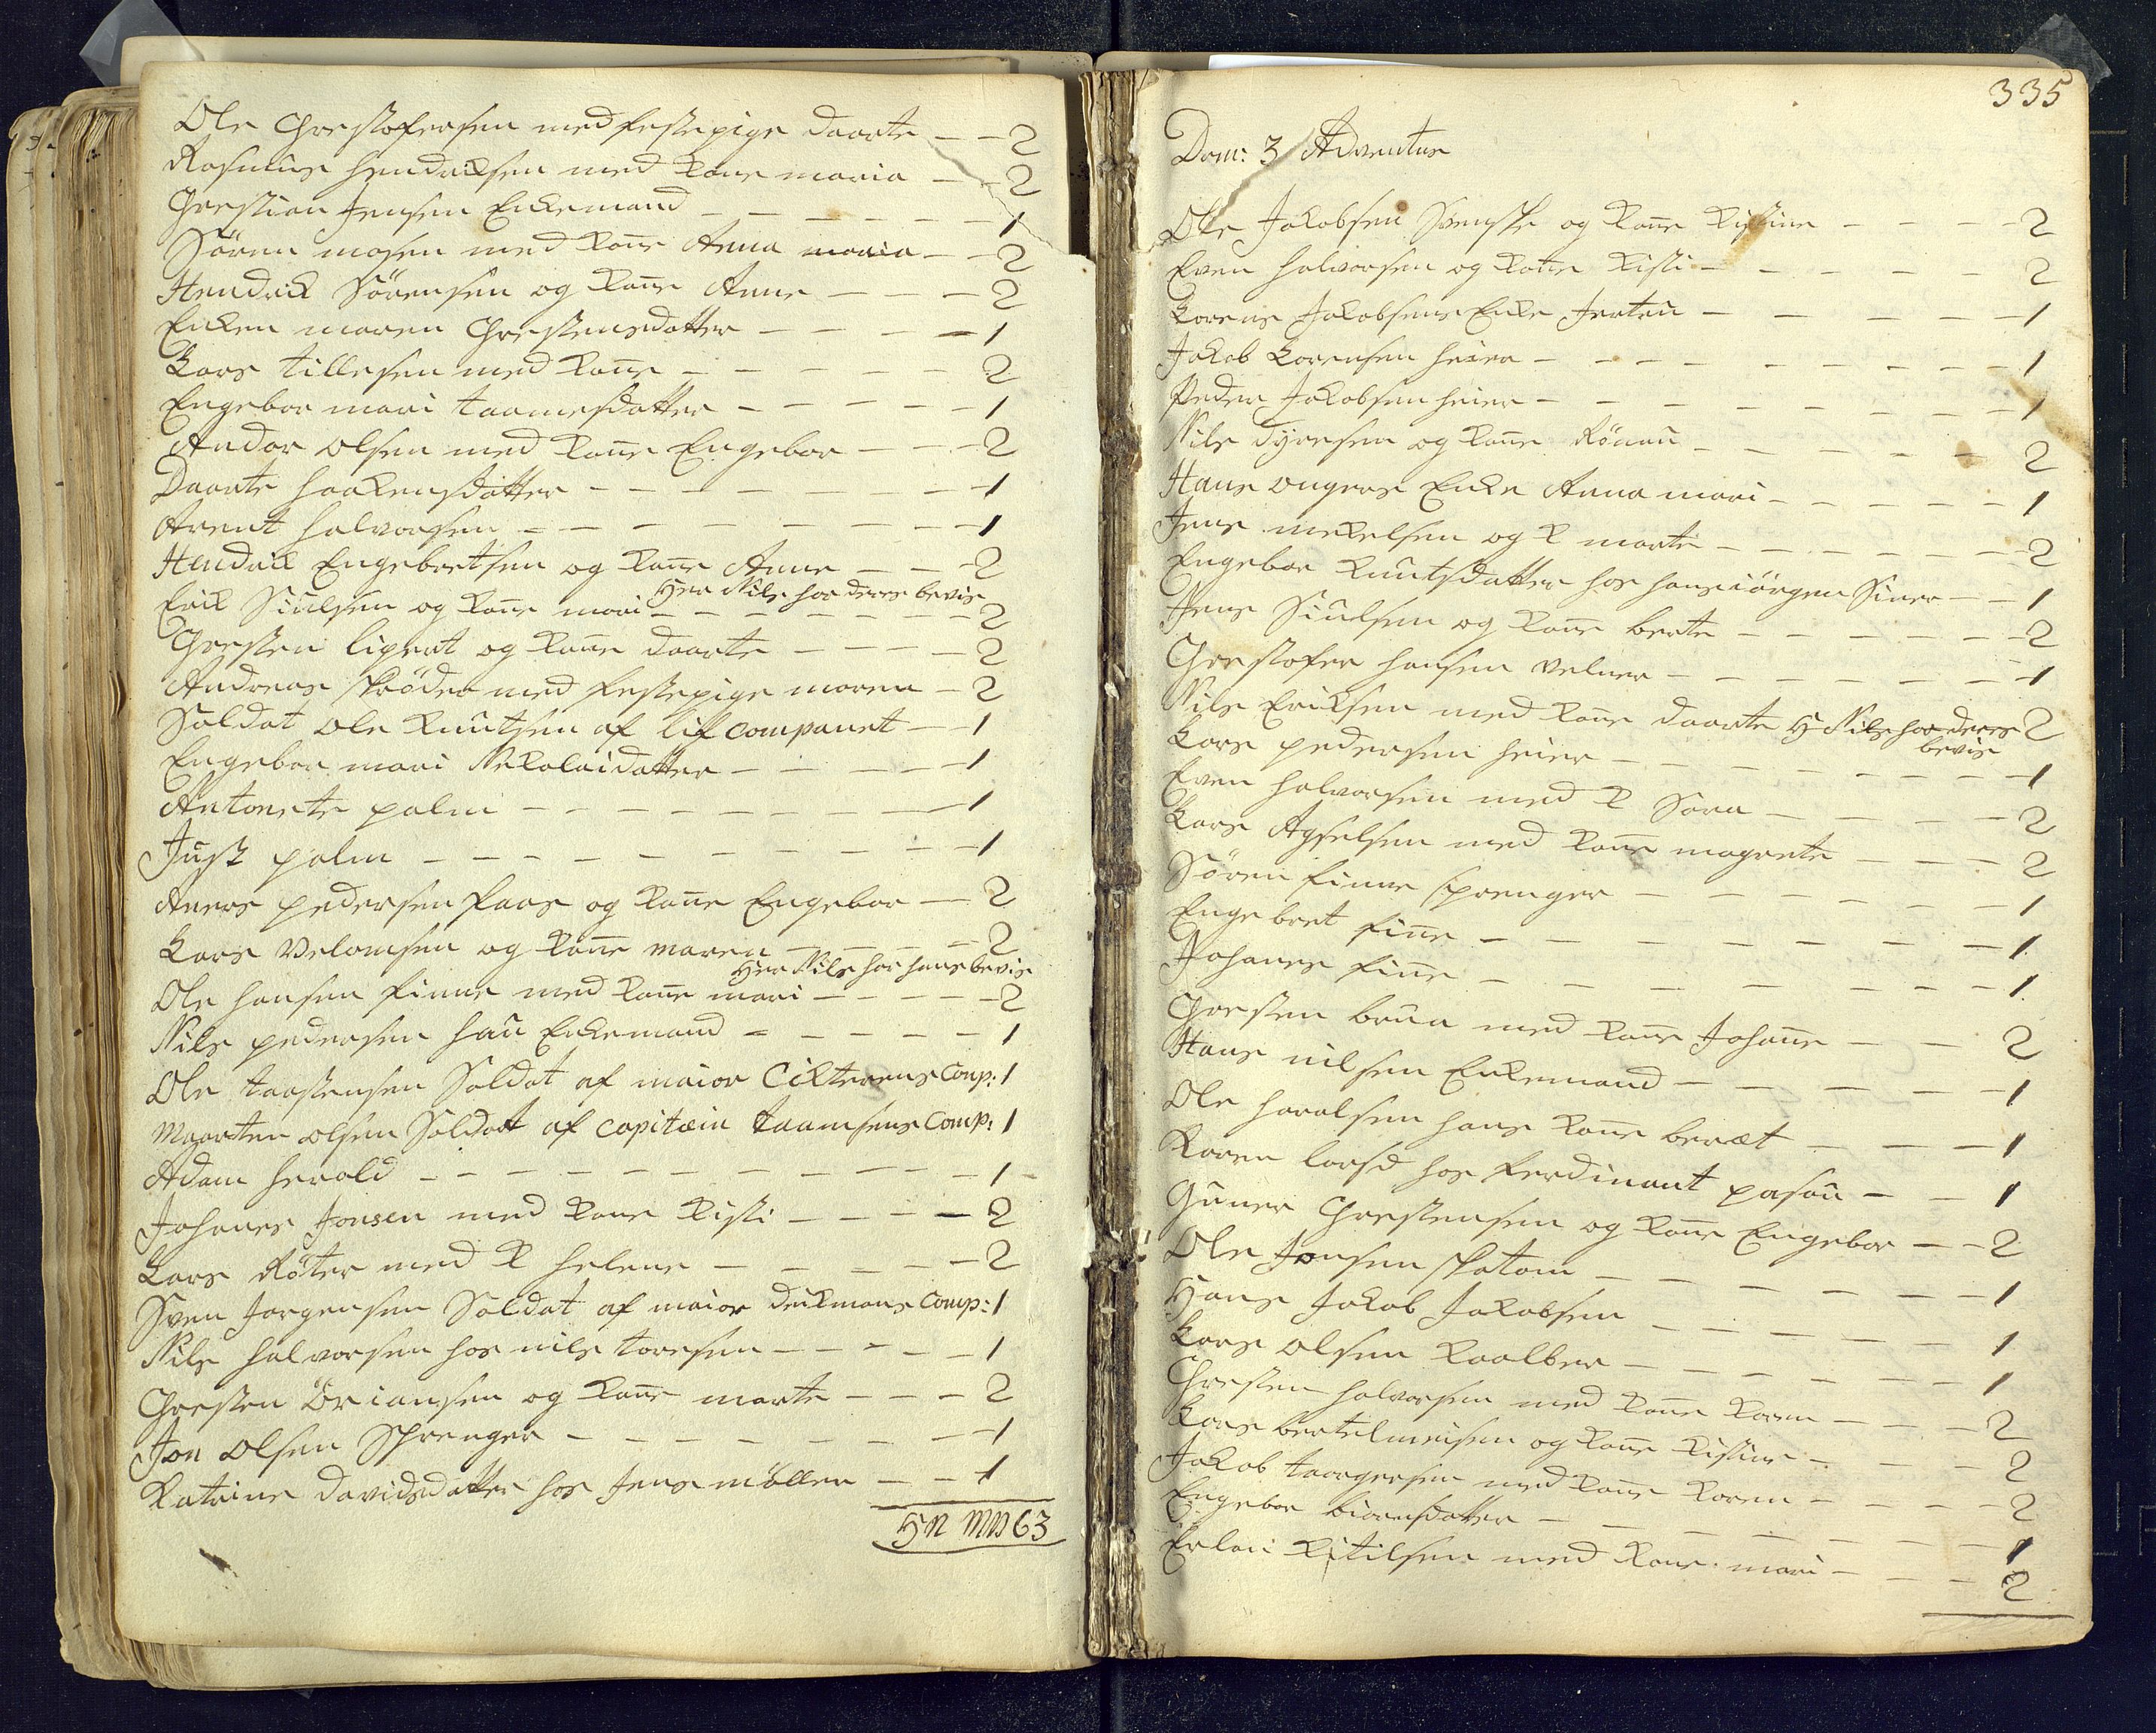 Ole Chrestofersen med festepige daarte — — 2
Rasmus Hendriksen med kone maria — — 2
Chrestian Jensen Enkemand — — — — — — 1
Sören mosen med kone Anna maria — — 2
Hendrik Sörensen og kone Anne — — — 2
Enken maren Chrestensdatter — — — — 1
Lars tillesen med kone — — — — — 2
Engebor mari taamesdatter — — — — — 1
Andor olsen med kone Engebor — — — 2
Daarte haakensdatter — — — — — — — 1
Arent halvorsen — — — — — — — 1
Hendrik Engebretsen og kone Anne — — — 2
Her Nils har deres bevis
Erik Siulsen og kone mari — — — — — — 2
Chresten lipert og kone daarte — — — — 2
Andreas skröder med festepige maren — 2
Soldat ole knutsen af lif companet — — 1
Engebor mari Nekolaidatter — — — — — 1
Antonete palm — — — — — — — 1
Just palm — — — — — — — — — 1
Aners pedersen faas og kone Engebor — 2
Lars Velomsen og kone maren — — — — 2
Her Nils har hans bevis
Ole hansen finne med kone mari — — — — 2
Nils pedersen hau Enkemand — — — — — 1
Ole taastensen Soldat af maior Cikterens Comp: 1
Maarten olsen Soldat af capitæin taamsens Comp: 1
Adam herold — — — — — — — — — 1
Johanes Jonsen med kone kisti — — — — 2
Lars Röter med k helene — — — — — 2
Sven Jorgensen Soldat af maior deikmans Comp: 1
Nils halvorsen hos nils toresen — — — — 1
Chresten Öriansen og kone marte — — — 2
Jon olsen Sprenger — — — — — — — 1
Katrine davidsdatter hos Jens möller — — 1
HN MN 63
335
Dom: 3 Adventus
Ole Jakobsen Svenske og kone kistine — — — — 2
Even halvorsen og kone kisti — — — — — 2
Lorens Jakobsens Enke Jertru — — — — — 1
Jakob Lorensen heier — — — — — — — 1
Peder Jakobsen heier — — — — — — — 1
Nils dyresen og kone Rönau — — — — — 2
Hans ongers Enke Anna mari — — — — — 1
Jens mekelsen og k marte — — — — — — 2
Engebor knutsdatter hos hans iörgen Siver — — 1
Jens Siulsen og kone berte — — — — — — 2
Chrestofer hansen velner — — — — — — — 1
Nils Eriksen med kone daarte H Nils har deres 2
bevis
Lars pedersen heier — — — — — — — 1
Even halvorsen med k Sara — — — — — 2
Lars Agselsen med kone magrete — — — 2
Sören finne sprenger — — — — — — 1
Engebret finne — — — — — — — — 1
Johanes finne — — — — — — — 1
Chresten brua med kone Johane — — 2
Hans nilsen Enkemand — — — — — — 1
Ole haralsen hans kone beræt — — — — 1
Karen larsd hos ferdinant pasau — — 1
Guner Chrestensen og kone Engebor — — 2
Ole Jonsen skatom — — — — — — 1
Hans Jakob Jakobsen — — — — — — 1
Lars olsen kaalber — — — — — — 1
Chresten halvorsen med kone karen — — — 2
Lars bertelmeisen og kone kistine — — — 2
Jakob taargersen med kone karen — — — — 2
Engebor biörnsdatter — — — — — — — 1
Erlan kitilsen med kone mari — — — — 2